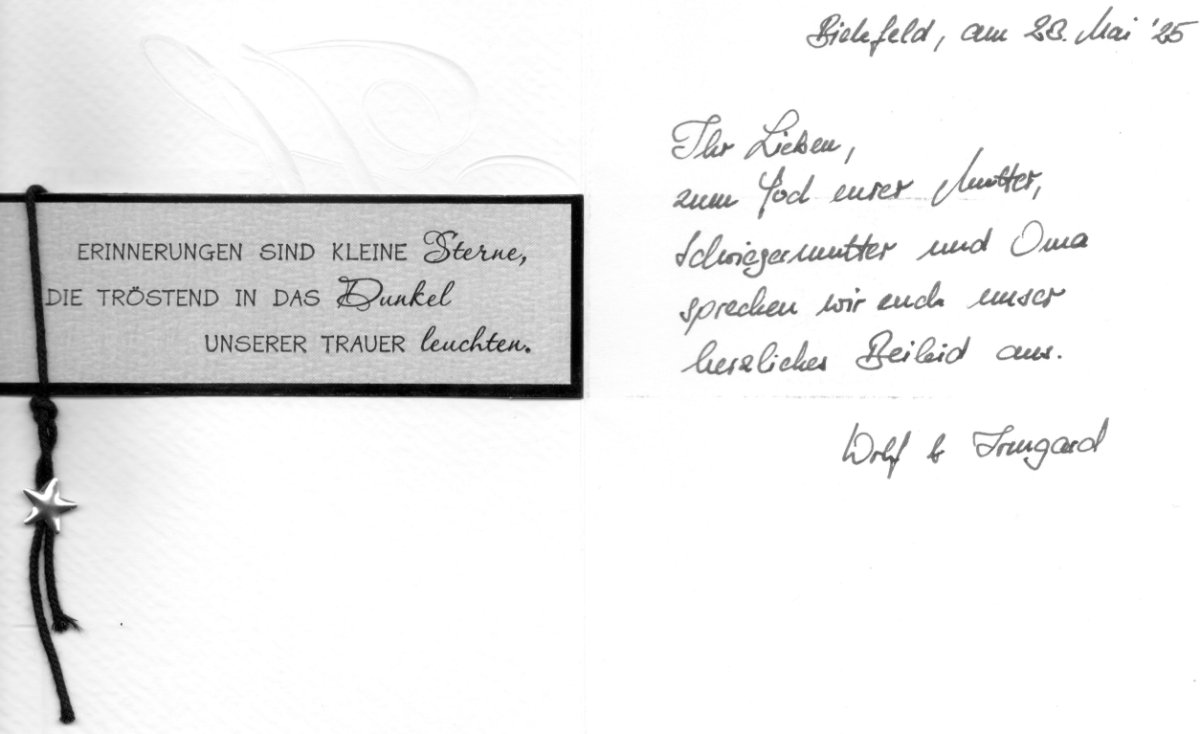 ERINNERUNGEN SIND KLEINE Sterne,
DIE TRÖSTEND IN DAS Dunkel
UNSERER TRAUER leuchten.
Bielefeld, am 28. Mai '25
Ihr Lieben,
zum Tod eurer Mutter,
Schwiegermutter und Oma
sprechen wir euch unser
herzliches Beileid aus.
Wolf & Irmgard